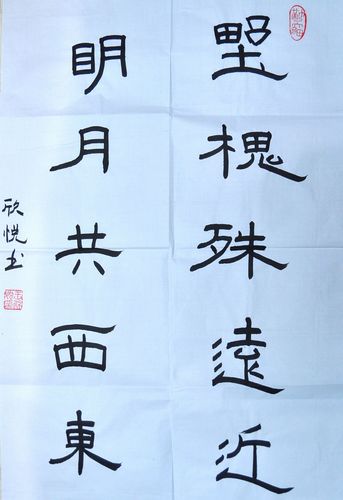 野槐殊遠近
明月共西東
欣悦书